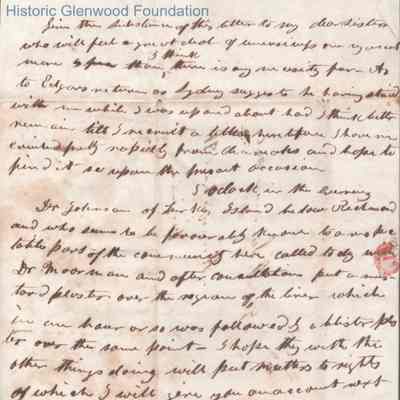 Historic Glenwood Foundation
Give the substance of this letter to my dear sisters
who will feel a great deal of uneasiness on my account
I think
more than there is any necessity for. As
to Edgar's return as Sydney suggests he having staid
with me while I was up and about had I think better
remain till I recruit a little
rapidly from and hope to
find it so upon the present occasion
5 oclock in the evening
Dr Johnson of Island below Richmond
and who seems to be favourably known to a respec
table part of the community here called today with
Dr Moorman and after consultation put a mus
tard plaster over the region of the liver which
in an hour or so was followed by a blister plas
ter over the same point - I hope they with the
other things doing will put matters to rights
of which I will give you an account next